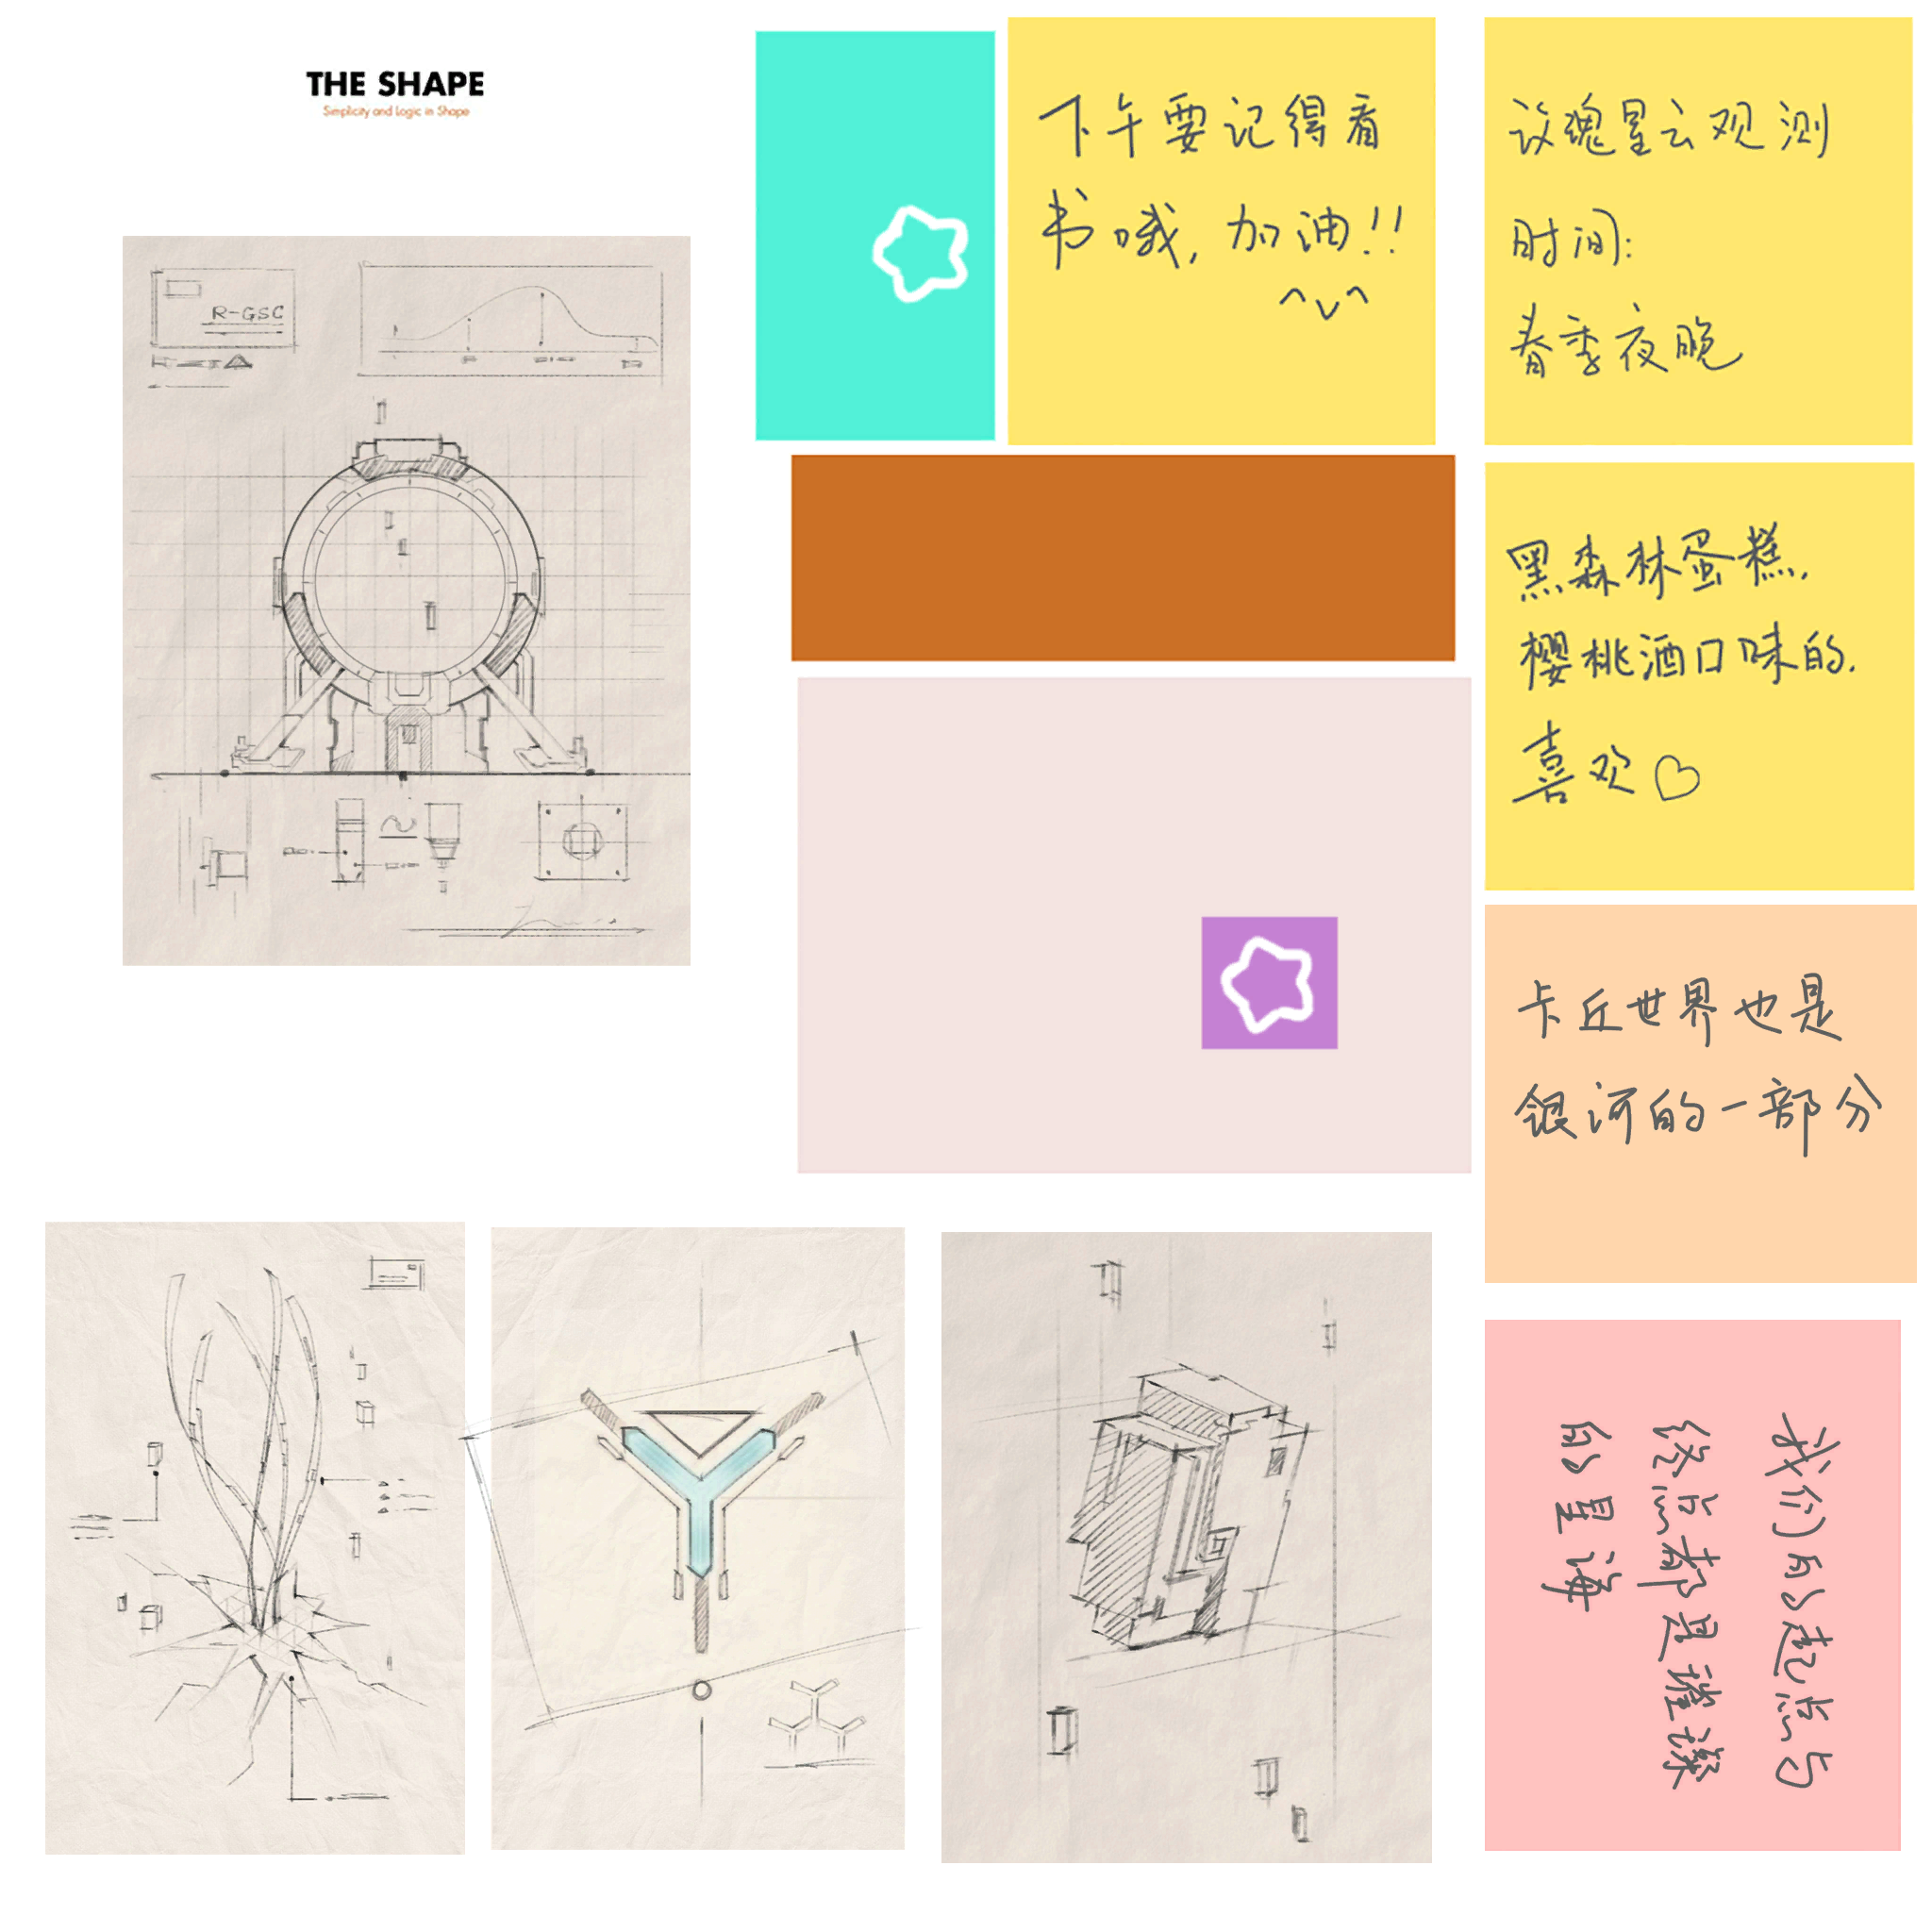 THE SHAPE
Simplicity and Logic in Shape
R-GSC
下午要记得看
书哦，加油!!
玫瑰星云观测
时间:
春季夜晚
黑森林蛋糕,
樱桃酒口味的.
喜欢♡
卡丘世界也是
银河的一部分
我们的起点与
终点都是璀璨
的星海